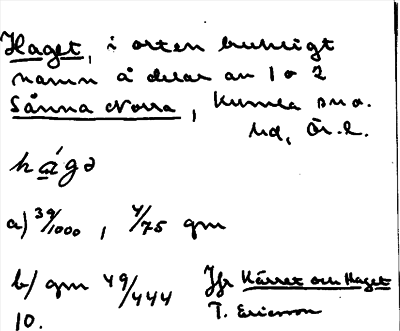 Haget, i orten brukligt
namn å delar av 1 o 2
Sånna Norra, Kumla sn o.
hd, Ör. l.
hágə
a) 39/1000, 4/75 qm
b/ qm 49/444 Jfr Kärret och Haget
10. T. Ericsson